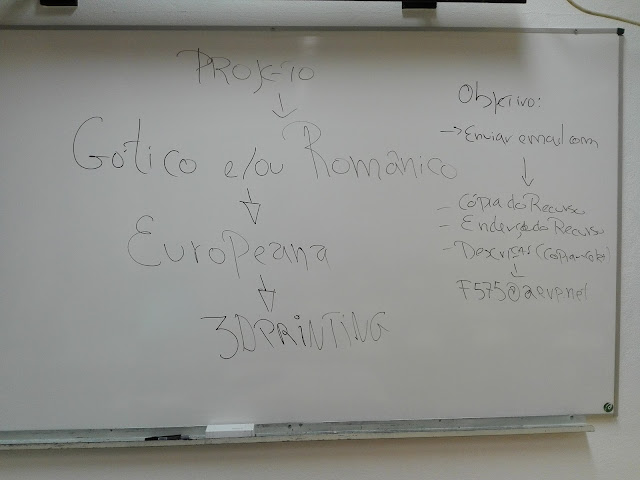 PROJETO
Gótico e/ou Românico
Europeana
3DPRINTING
Objetivo:
→ Enviar email com
- Cópia do Recurso
- Endereço do Recurso
- Descrição (cópia
F575@aevp.net